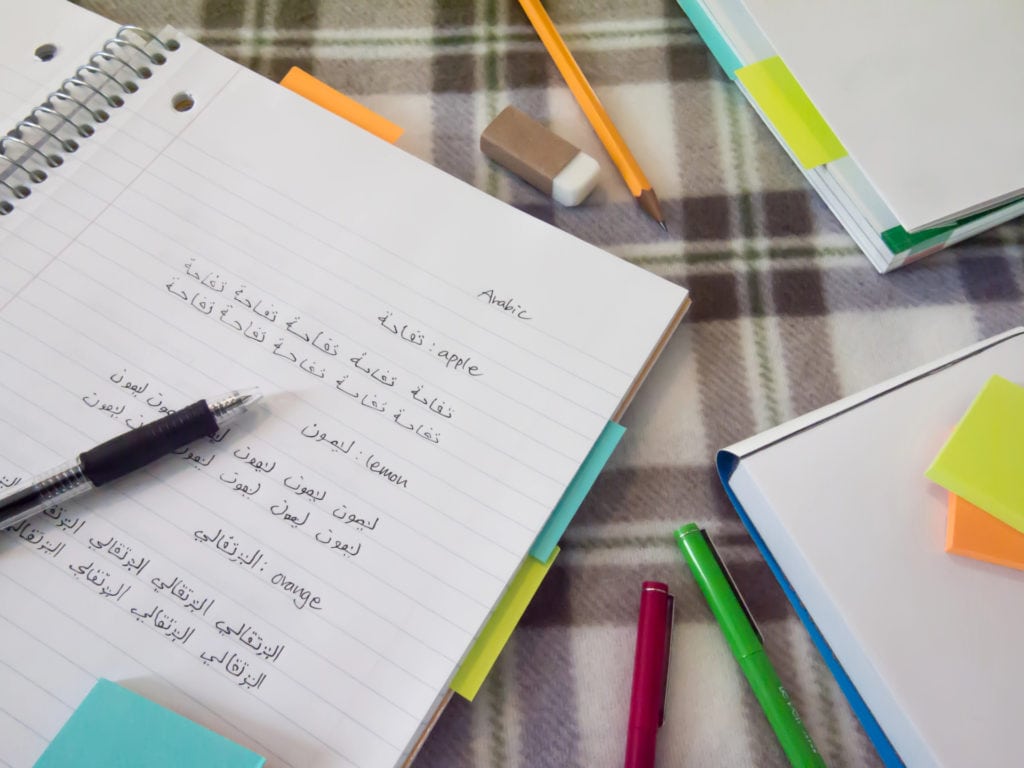 Arabic
تفاحة : apple
تفاحة تفاحة تفاحة تفاحة تفاحة
تفاحة تفاحة تفاحة تفاحة تفاحة
ليمون : lemon
ليمون ليمون ليمون ليمون
ليمون ليمون ليمون ليمون ليمون ليمون
البرتقالي : orange
البرتقالي البرتقالي البرتقالي
البرتقالي البرتقالي البرتقالي البرتقالي